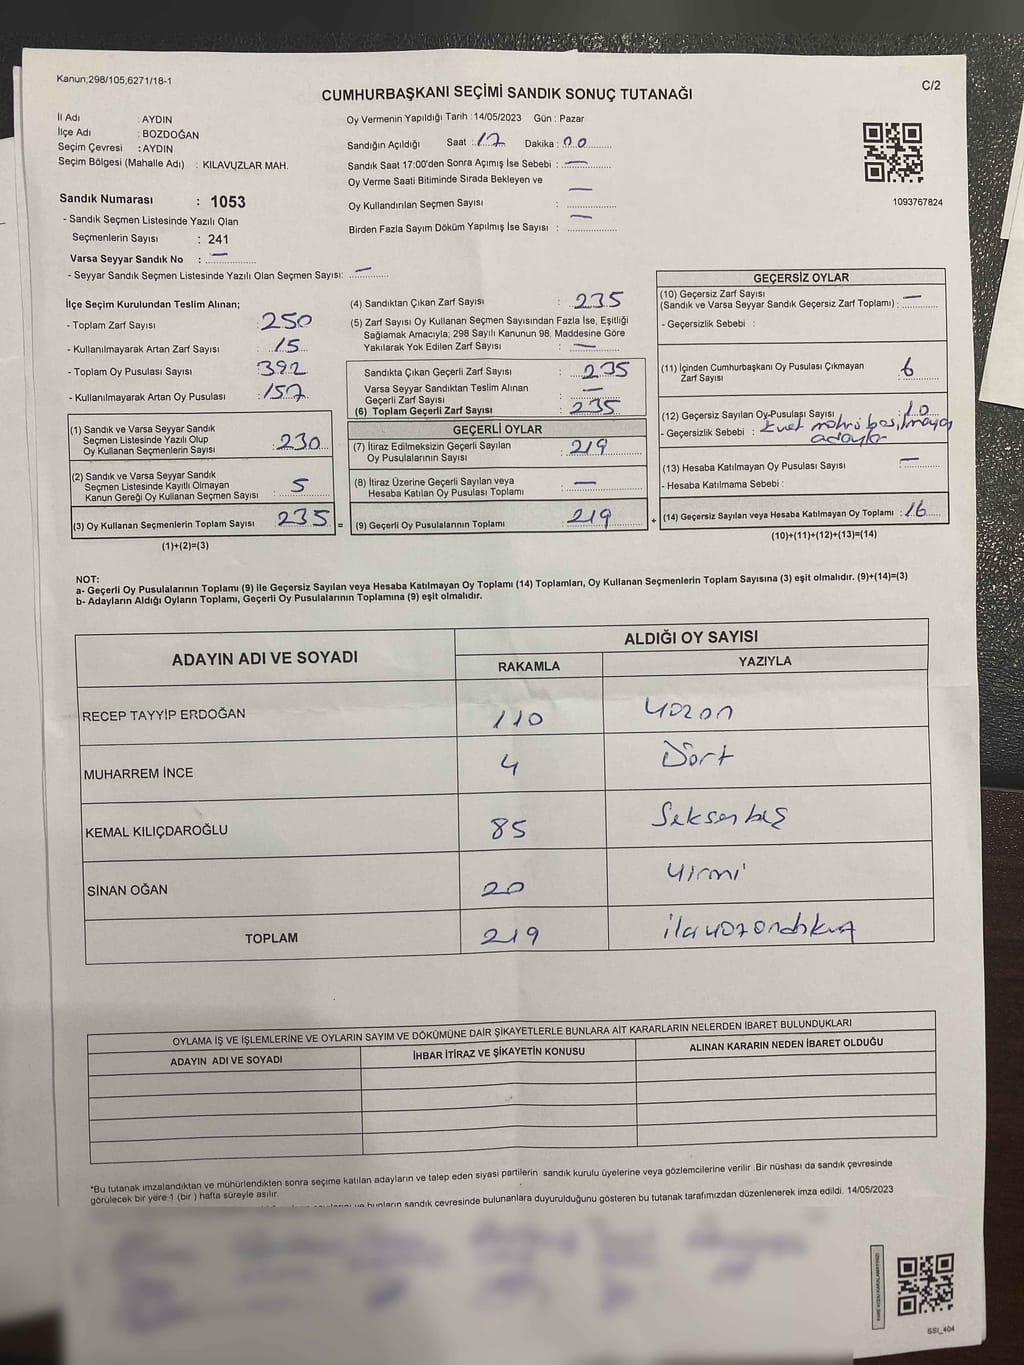 Kanun;298/105,6271/18-1
C/2
CUMHURBAŞKANI SEÇİMİ SANDIK SONUÇ TUTANAĞI
İl Adı : AYDIN
İlçe Adı : BOZDOĞAN
Seçim Çevresi : AYDIN
Seçim Bölgesi (Mahalle Adı) : KILAVUZLAR MAH.
Sandık Numarası : 1053
- Sandık Seçmen Listesinde Yazılı Olan
Seçmenlerin Sayısı : 241
Varsa Seyyar Sandık No : —
- Seyyar Sandık Seçmen Listesinde Yazılı Olan Seçmen Sayısı: —
Oy Vermenin Yapıldığı Tarih : 14/05/2023 Gün : Pazar
Sandığın Açıldığı Saat : 17 Dakika : 00
Sandık Saat 17:00'den Sonra Açımış İse Sebebi : —
Oy Verme Saati Bitiminde Sırada Bekleyen ve
Oy Kullandırılan Seçmen Sayısı : —
Birden Fazla Sayım Döküm Yapılmış İse Sayısı : —
1093767824
İlçe Seçim Kurulundan Teslim Alınan;
- Toplam Zarf Sayısı : 250
- Kullanılmayarak Artan Zarf Sayısı : 15
- Toplam Oy Pusulası Sayısı : 392
- Kullanılmayarak Artan Oy Pusulası : 157
(1) Sandık ve Varsa Seyyar Sandık
Seçmen Listesinde Yazılı Olup
Oy Kullanan Seçmenlerin Sayısı : 230
(2) Sandık ve Varsa Seyyar Sandık
Seçmen Listesinde Kayıtlı Olmayan
Kanun Gereği Oy Kullanan Seçmen Sayısı : 5
(3) Oy Kullanan Seçmenlerin Toplam Sayısı : 235 =
(1)+(2)=(3)
(4) Sandıktan Çıkan Zarf Sayısı : 235
(5) Zarf Sayısı Oy Kullanan Seçmen Sayısından Fazla İse, Eşitliği
Sağlamak Amacıyla; 298 Sayılı Kanunun 98. Maddesine Göre
Yakılarak Yok Edilen Zarf Sayısı : —
Sandıkta Çıkan Geçerli Zarf Sayısı : 235
Varsa Seyyar Sandıktan Teslim Alınan
Geçerli Zarf Sayısı : —
(6) Toplam Geçerli Zarf Sayısı : 235
GEÇERLİ OYLAR
(7) İtiraz Edilmeksizin Geçerli Sayılan
Oy Pusulalarının Sayısı : 219
(8) İtiraz Üzerine Geçerli Sayılan veya
Hesaba Katılan Oy Pusulası Toplamı : —
(9) Geçerli Oy Pusulalarının Toplamı : 219 +
GEÇERSİZ OYLAR
(10) Geçersiz Zarf Sayısı
(Sandık ve Varsa Seyyar Sandık Geçersiz Zarf Toplamı) : —
- Geçersizlik Sebebi :
(11) İçinden Cumhurbaşkanı Oy Pusulası Çıkmayan
Zarf Sayısı : 6
(12) Geçersiz Sayılan Oy Pusulası Sayısı : 10
- Geçersizlik Sebebi :
(13) Hesaba Katılmayan Oy Pusulası Sayısı : —
- Hesaba Katılmama Sebebi :
(14) Geçersiz Sayılan veya Hesaba Katılmayan Oy Toplamı : 16
(10)+(11)+(12)+(13)=(14)
NOT:
a- Geçerli Oy Pusulalarının Toplamı (9) ile Geçersiz Sayılan veya Hesaba Katılmayan Oy Toplamı (14) Toplamları, Oy Kullanan Seçmenlerin Toplam Sayısına (3) eşit olmalıdır. (9)+(14)=(3)
b- Adayların Aldığı Oyların Toplamı, Geçerli Oy Pusulalarının Toplamına (9) eşit olmalıdır.
ADAYIN ADI VE SOYADI ALDIĞI OY SAYISI
RAKAMLA YAZIYLA
RECEP TAYYİP ERDOĞAN 110 yüzon
MUHARREM İNCE 4 Dört
KEMAL KILIÇDAROĞLU 85 Seksenbeş
SİNAN OĞAN 20 Yirmi
TOPLAM 219
OYLAMA İŞ VE İŞLEMLERİNE VE OYLARIN SAYIM VE DÖKÜMÜNE DAİR ŞİKAYETLERLE BUNLARA AİT KARARLARIN NELERDEN İBARET BULUNDUKLARI
ADAYIN ADI VE SOYADI İHBAR İTİRAZ VE ŞİKAYETİN KONUSU ALINAN KARARIN NEDEN İBARET OLDUĞU
*Bu tutanak imzalandıktan ve mühürlendikten sonra seçime katılan adayların ve talep eden siyasi partilerin sandık kurulu üyelerine veya gözlemcilerine verilir .Bir nüshası da sandık çevresinde
görülecek bir yere 1 (bir ) hafta süreyle asılır.
bunların sandık çevresinde bulunanlara duyurulduğunu gösteren bu tutanak tarafımızdan düzenlenerek imza edildi. 14/05/2023
SSI_404